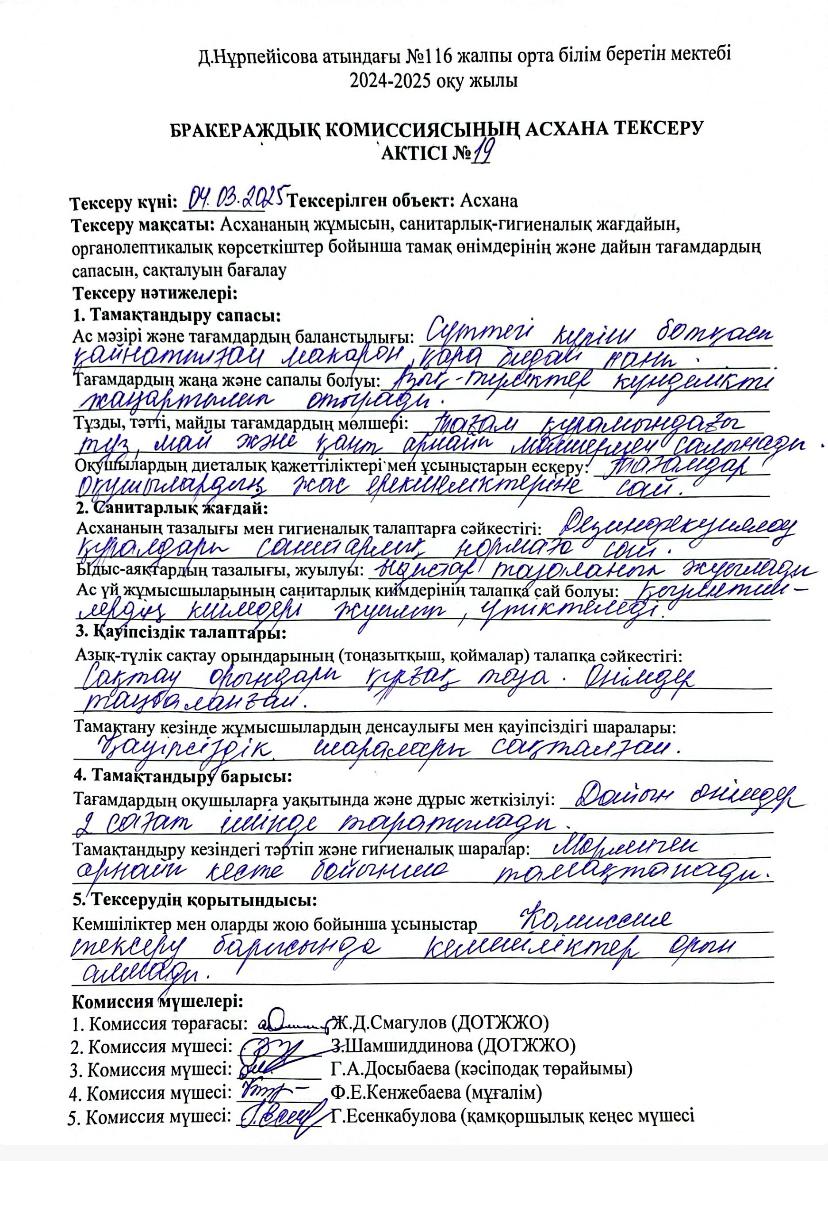 Д.Нұрпейісова атындағы №116 жалпы орта білім беретін мектебі
2024-2025 оқу жылы
БРАКЕРАЖДЫҚ КОМИССИЯСЫНЫҢ АСХАНА ТЕКСЕРУ
АКТІСІ №19
Тексеру күні: 04.03.2025 Тексерілген объект: Асхана
Тексеру мақсаты: Асхананың жұмысын, санитарлық-гигиеналық жағдайын,
органолептикалық көрсеткіштер бойынша тамақ өнімдерінің және дайын тағамдардың
сапасын, сақталуын бағалау
Тексеру нәтижелері:
1. Тамақтандыру сапасы:
Ас мәзірі және тағамдардың баланстылығы: Сүттегі күріш ботқасы
қайнатылған макарон, қара бидай наны.
Тағамдардың жаңа және сапалы болуы: Азық-түліктер күнделікті
жаңартылып отырады.
Тұзды, тәтті, майлы тағамдардың мөлшері: Тағам құрамындағы
тұз, май және қант арнайы мөлшермен салынады.
Оқушылардың диеталық қажеттіліктері мен ұсыныстарын ескеру: Тағамдар
оқушылардың жас ерекшеліктеріне сай.
2. Санитарлық жағдай:
Асхананың тазалығы мен гигиеналық талаптарға сәйкестігі: Дезинфекциялау
құралдары санитарлық нормаға сай.
Ыдыс-аяқтардың тазалығы, жуылуы: Ыдыстар тазаланып жуылады
Ас үй жұмысшыларының санитарлық киімдерінің талапқа сай болуы: Қызметші-
лердің киімдері жуылып, үтіктеледі.
3. Қауіпсіздік талаптары:
Азық-түлік сақтау орындарының (тоңазытқыш, қоймалар) талапқа сәйкестігі:
Сақтау орындары құрғақ таза. Өнімдер
таңбаланған.
Тамақтану кезінде жұмысшылардың денсаулығы мен қауіпсіздігі шаралары:
Қауіпсіздік шаралары сақталған.
4. Тамақтандыру барысы:
Тағамдардың оқушыларға уақытында және дұрыс жеткізілуі: Дайын өнімдер
2 сағат ішінде таратылады.
Тамақтандыру кезіндегі тәртіп және гигиеналық шаралар: Мөрленген
арнайы кесте бойынша тамақтанады.
5. Тексерудің қорытындысы:
Кемшіліктер мен оларды жою бойынша ұсыныстар Комиссия
тексеру барысында кемшіліктер орын
алмады.
Комиссия мүшелері:
1. Комиссия төрағасы: Ж.Д.Смагулов (ДОТЖЖО)
2. Комиссия мүшесі: З.Шамшиддинова (ДОТЖЖО)
3. Комиссия мүшесі: Г.А.Досыбаева (кәсіподақ төрайымы)
4. Комиссия мүшесі: Ф.Е.Кенжебаева (мұғалім)
5. Комиссия мүшесі: Г.Есенкабулова (қамқоршылық кеңес мүшесі